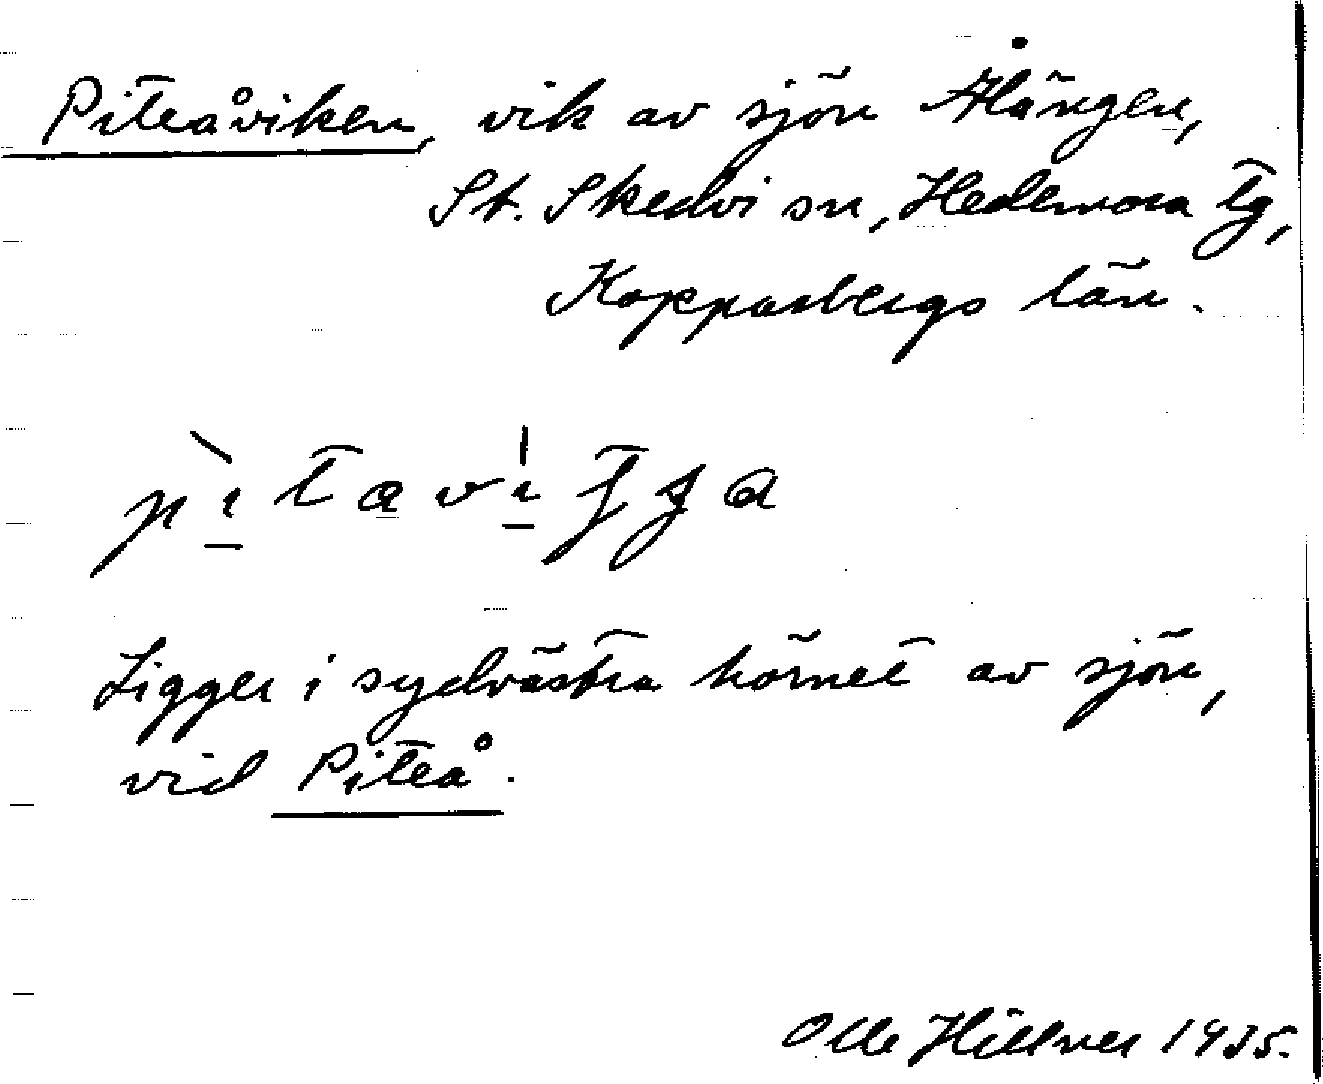 Piteåviken, vik av sjön Ålången,
St. Skedvi sn, Hedemora tg,
Kopparbergs län.
Ligger i sydvästra hörnet av sjön,
vid Piteå.
Olle Hillner 1935.